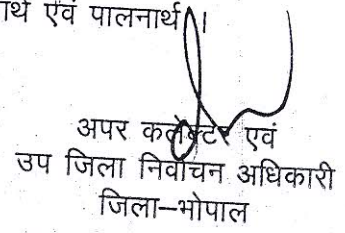 एवं पालनार्थ।
अपर कलेक्टर एवं
उप जिला निर्वाचन अधिकारी
जिला–भोपाल